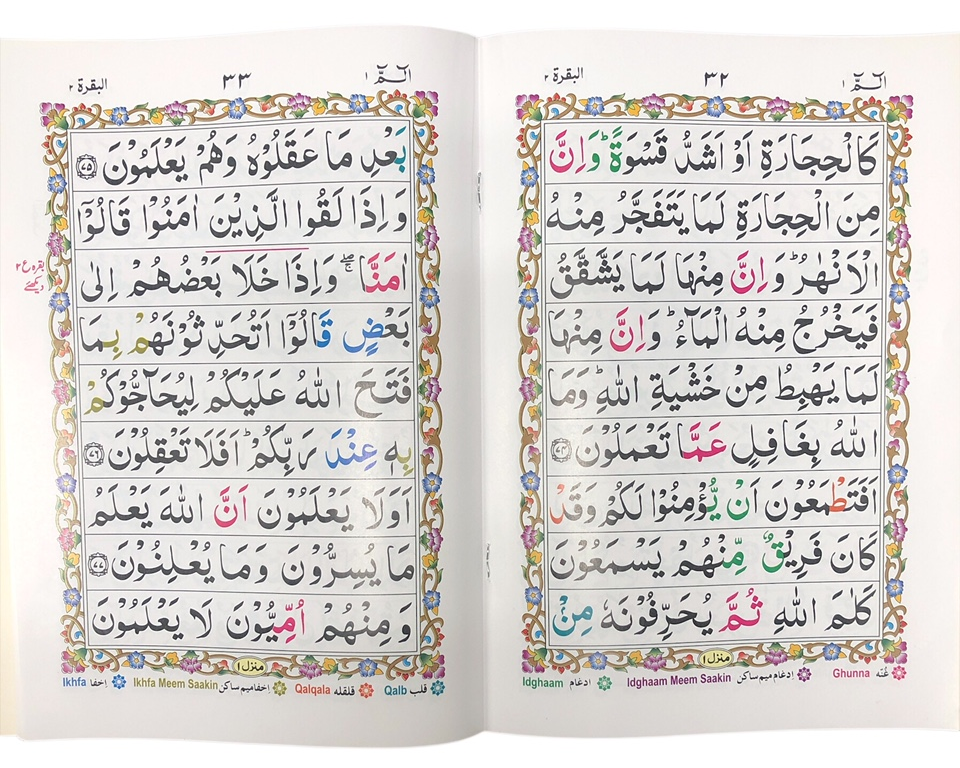 الٓمّٓ ١
٣٢
البقرة ٢
كَالْحِجَارَةِ اَوْ اَشَدُّ قَسْوَةً ؕ وَاِنَّ
مِنَ الْحِجَارَةِ لَمَا يَتَفَجَّرُ مِنْهُ
الْاَنْهٰرُ ؕ وَاِنَّ مِنْهَا لَمَا يَشَّقَّقُ
فَيَخْرُجُ مِنْهُ الْمَآءُ ؕ وَاِنَّ مِنْهَا
لَمَا يَهْبِطُ مِنْ خَشْيَةِ اللّٰهِ ؕ وَمَا
اللّٰهُ بِغَافِلٍ عَمَّا تَعْمَلُوْنَ ﴿٧٤﴾
اَفَتَطْمَعُوْنَ اَنْ يُّؤْمِنُوْا لَكُمْ وَقَدْ
كَانَ فَرِيْقٌ مِّنْهُمْ يَسْمَعُوْنَ
كَلٰمَ اللّٰهِ ثُمَّ يُحَرِّفُوْنَهٗ مِنْۢ
منزل ١
Ghunna غُنّه
Idghaam Meem Saakin اِدغام ميم ساكن
Idghaam اِدغام
الٓمّٓ ١
٣٣
البقرة ٢
بَعْدِ مَا عَقَلُوْهُ وَهُمْ يَعْلَمُوْنَ ﴿٧٥﴾
وَاِذَا لَقُوا الَّذِيْنَ اٰمَنُوْا قَالُوْٓا
اٰمَنَّا ۚۖ وَاِذَا خَلَا بَعْضُهُمْ اِلٰى
بَعْضٍ قَالُوْٓا اَتُحَدِّثُوْنَهُمْ بِمَا
فَتَحَ اللّٰهُ عَلَيْكُمْ لِيُحَآجُّوْكُمْ
بِهٖ عِنْدَ رَبِّكُمْ ؕ اَفَلَا تَعْقِلُوْنَ ﴿٧٦﴾
اَوَلَا يَعْلَمُوْنَ اَنَّ اللّٰهَ يَعْلَمُ
مَا يُسِرُّوْنَ وَمَا يُعْلِنُوْنَ ﴿٧٧﴾
وَمِنْهُمْ اُمِّيُّوْنَ لَا يَعْلَمُوْنَ
بقره ع ٢
ديكھئے
منزل ١
Qalb قلب
Qalqala قلقله
Ikhfa Meem Saakin اِخفا ميم ساكن
Ikhfa اِخفا